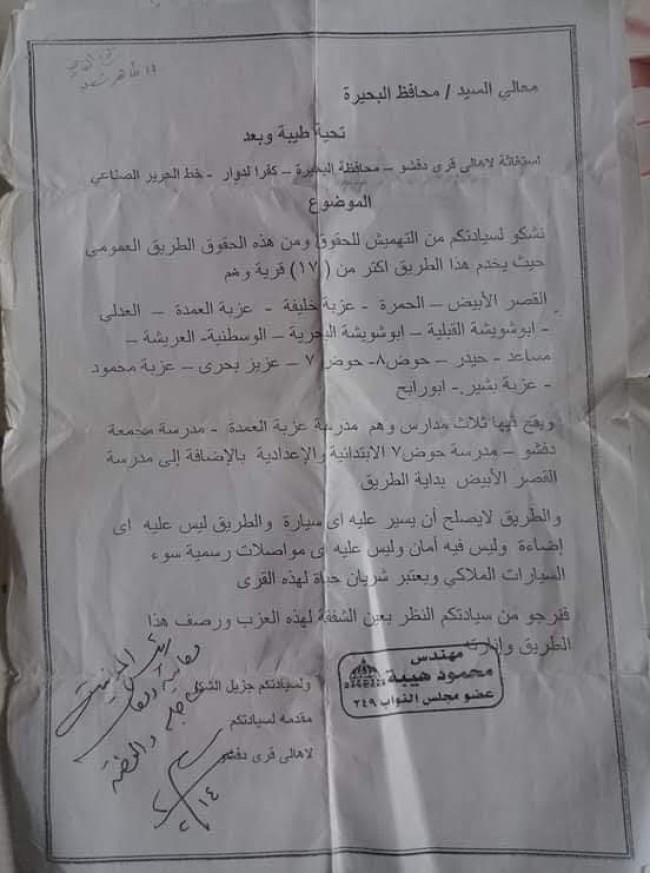 معالي السيد / محافظ البحيرة
تحية طيبة وبعد
استغاثة لاهالى قرى دفشو – محافظة البحيرة – كفرا لدوار - خط الحرير الصناعي
الموضوع
نشكو لسيادتكم من التهميش للحقوق ومن هذه الحقوق الطريق العمومى
حيث يخدم هذا الطريق اكثر من (١٧) قرية وهم
القصر الأبيض – الحمرة - عزبة خليفة - عزبة العمدة – العدلي
- ابوشويشة القبلية – ابوشويشة البحرية – الوسطنية- العريشة –
مساعد - حيدر – حوض٨- حوض ٧ – عزيز بحرى – عزبة محمود
- عزبة بشير - ابورابح
ويقع فيها ثلاث مدارس وهم مدرسة عزبة العمدة - مدرسة مجمعة
دفشو – مدرسة حوض٧ الابتدائية والإعدادية بالإضافة إلى مدرسة
القصر الأبيض بداية الطريق
والطريق لايصلح أن يسير عليه اى سيارة والطريق ليس عليه اى
إضاءة وليس فيه أمان وليس عليه اى مواصلات رسمية سوء
السيارات الملاكي ويعتبر شريان حياة لهذه القرى
فنرجو من سيادتكم النظر بعين الشفقة لهذه العزب ورصف هذا
الطريق وإنارته
مهندس
محمود هيبة
عضو مجلس النواب ٢٤٩
ولسيادتكم جزيل الشكر
مقدمه لسيادتكم
لاهالى قرى دفشو